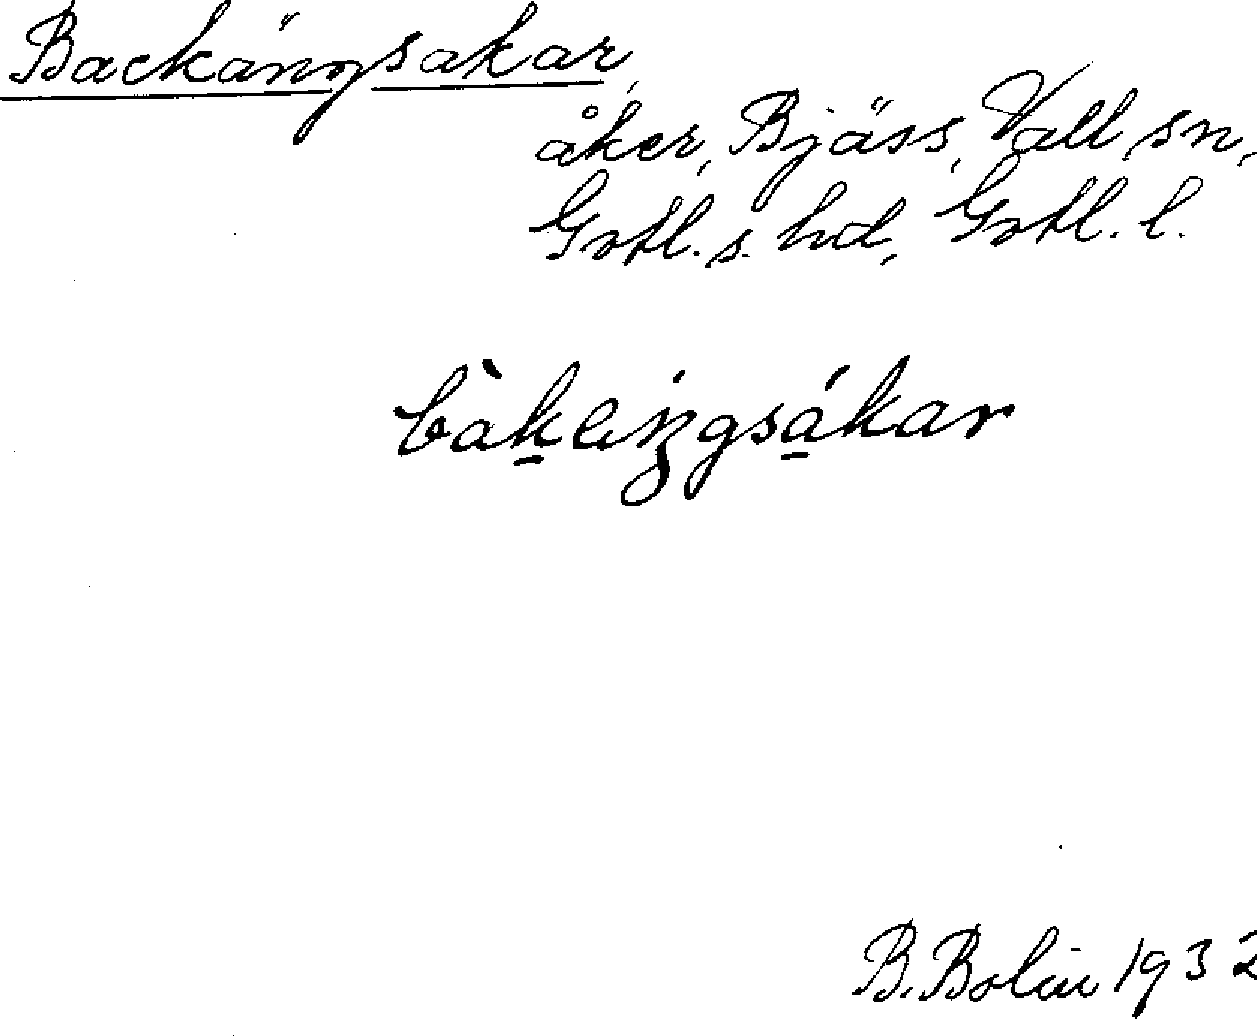 Backängsakar,
åker, Bjäss, Vall sn,
Gotl. s. hd, Gotl. l.
B. Bolin 1932